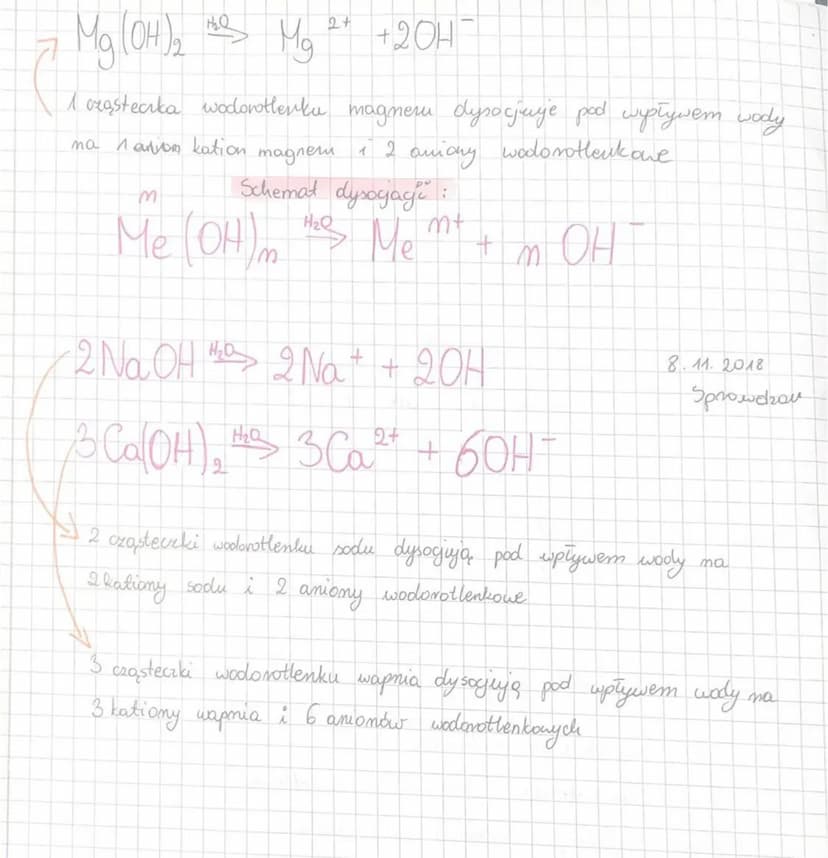 Mg(OH)₂ H₂O→ Mg²⁺ + 2OH⁻
1 cząsteczka wodorotlenku magnezu dysocjuje pod wpływem wody
na 1 kation magnezu i 2 aniony wodorotlenkowe
Schemat dysocjacji:
n
Me(OH)n H₂O→ Me n+ + n OH⁻
2NaOH H₂O→ 2Na⁺ + 2OH
8.11.2018
Sprawdzian
3Ca(OH)₂ H₂O→ 3Ca²⁺ + 6OH⁻
2 cząsteczki wodorotlenku sodu dysocjują pod wpływem wody na
2 kationy sodu i 2 aniony wodorotlenkowe
3 cząsteczki wodorotlenku wapnia dysocjują pod wpływem wody na
3 kationy wapnia i 6 anionów wodorotlenkowych